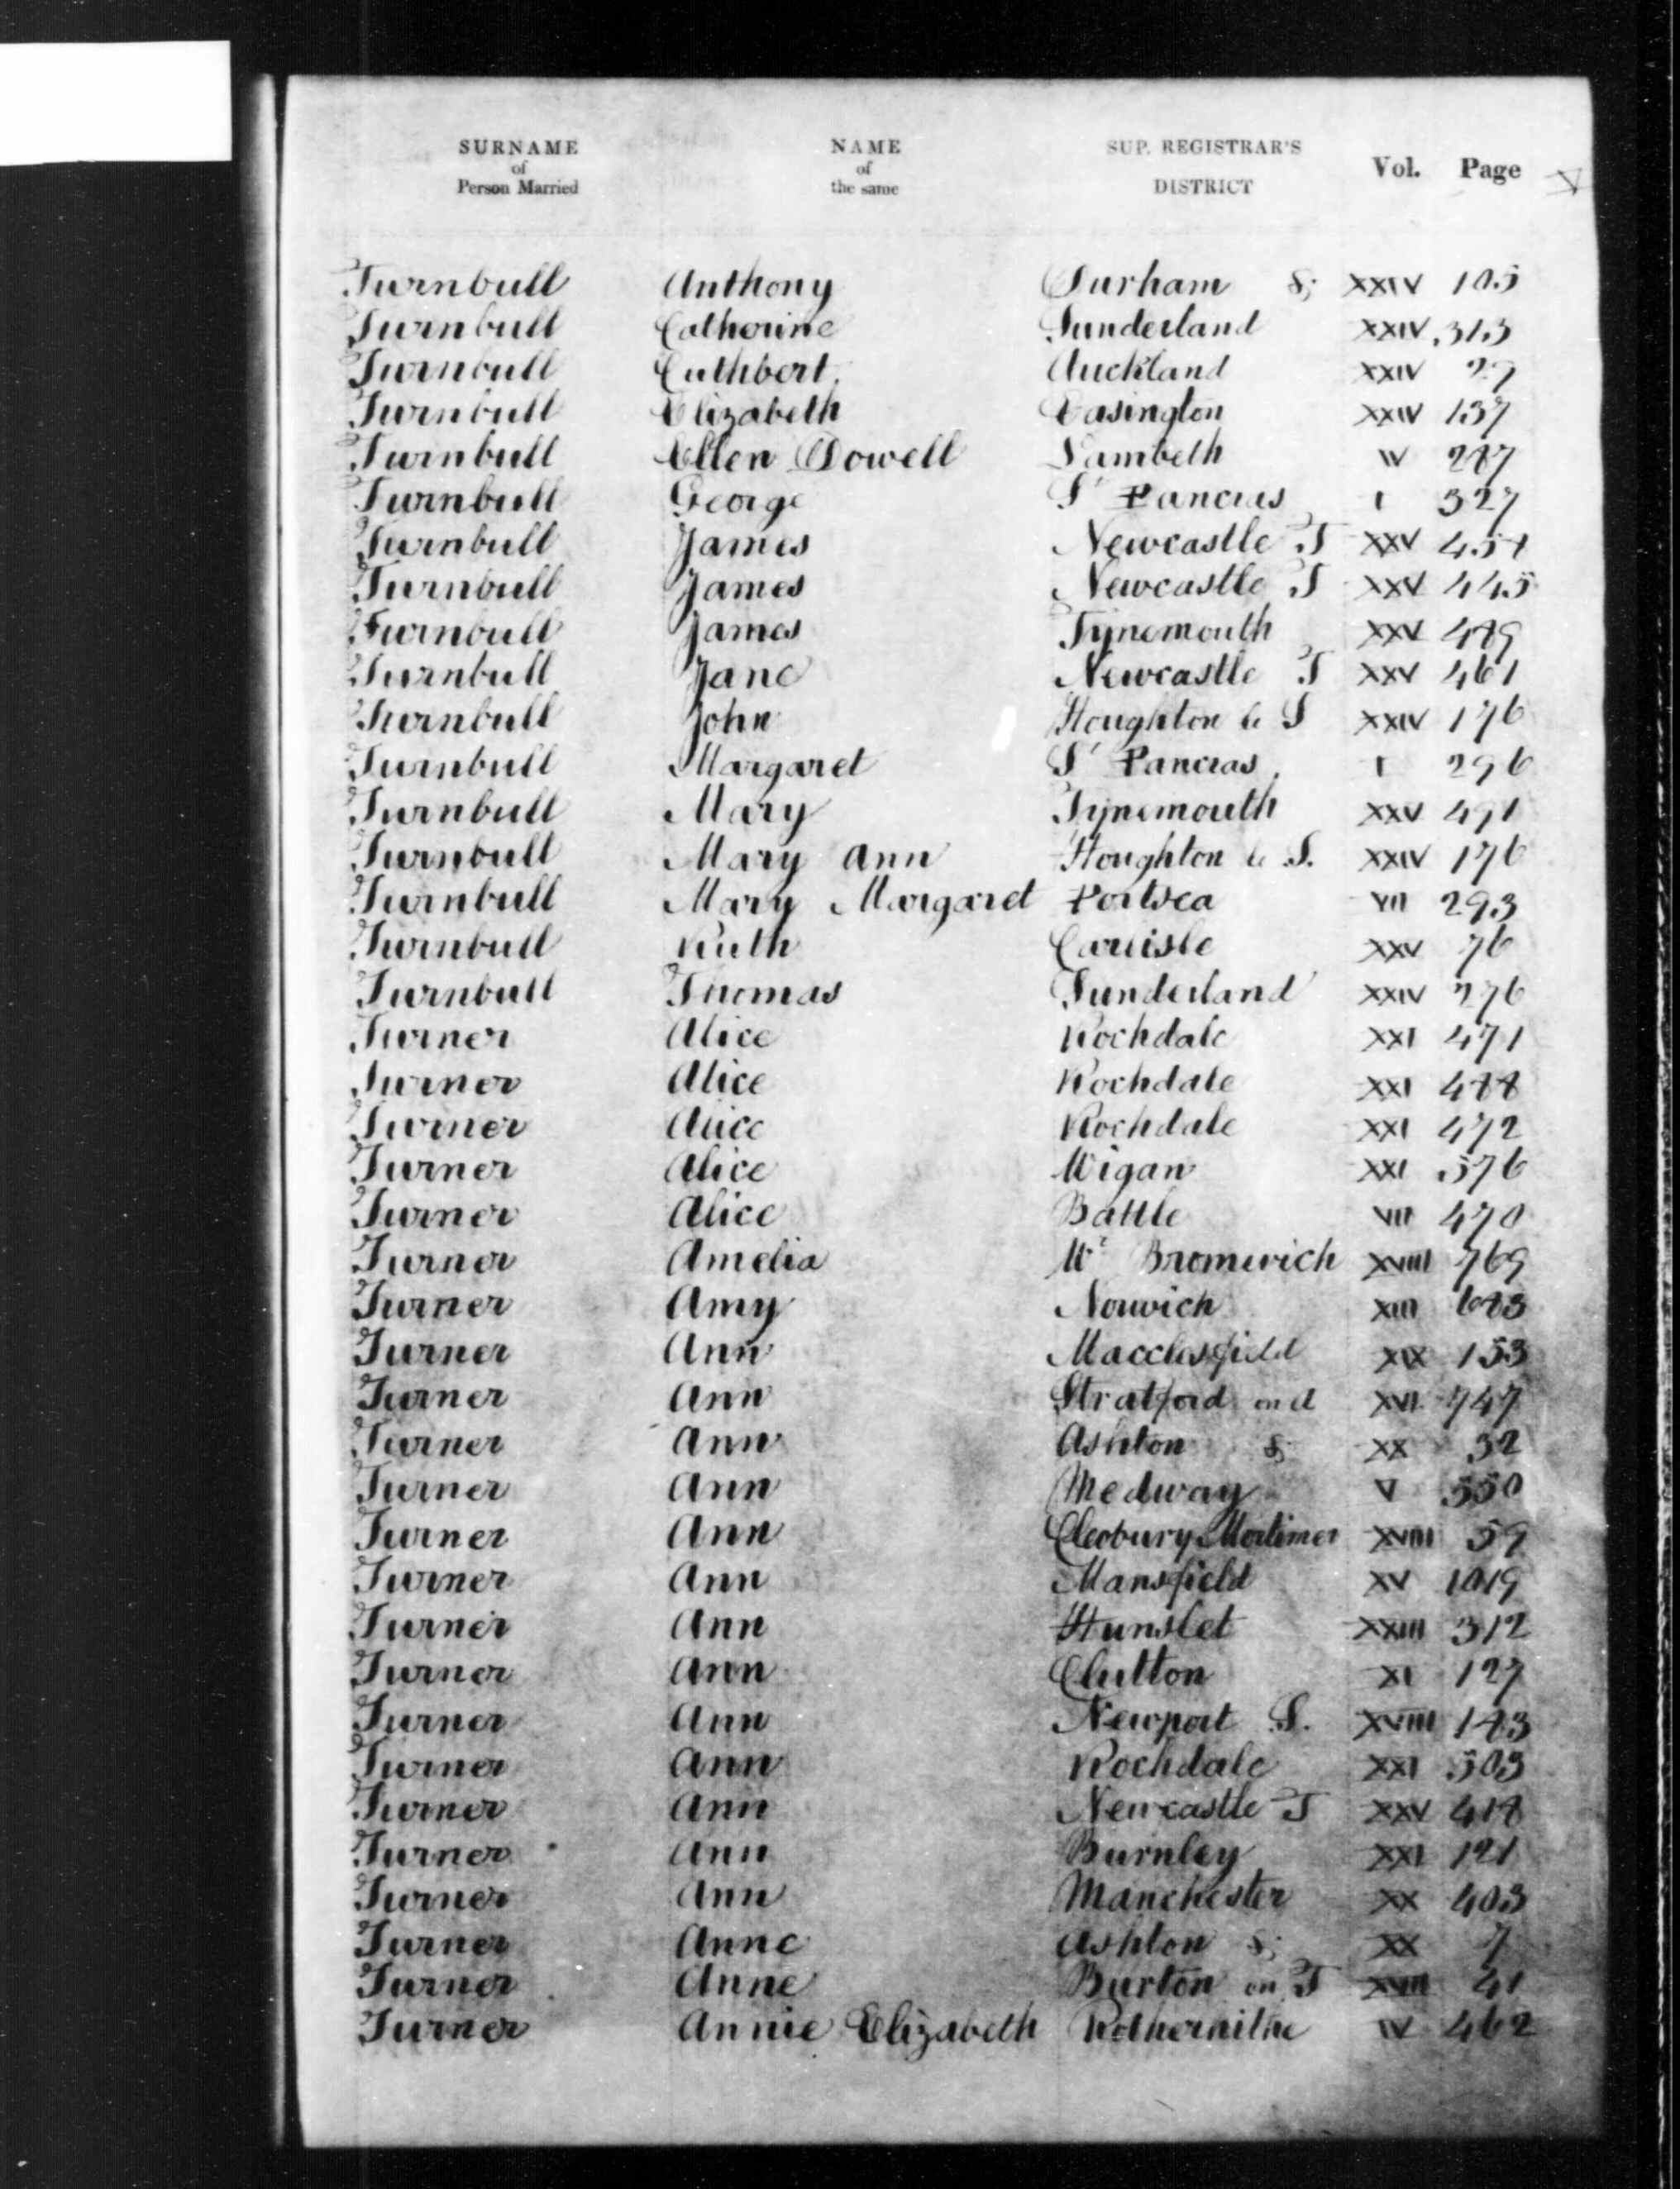 SURNAME of Person Married NAME of the same SUP. REGISTRAR'S DISTRICT Vol. Page
Turnbull Anthony Durham &c XXIV 105
Turnbull Catherine Sunderland XXIV 313
Turnbull Cuthbert Auckland XXIV 29
Turnbull Elizabeth Easington XXIV 137
Turnbull Ellen Dowell Lambeth IV 287
Turnbull George St Pancras I 327
Turnbull James Newcastle T XXV
Turnbull James Newcastle T XXV 445
Turnbull James Tynemouth XXV 489
Turnbull Jane Newcastle T XXV 461
Turnbull John Houghton le S XXIV 176
Turnbull Margaret St Pancras I 296
Turnbull Mary Tynemouth XXV 491
Turnbull Mary Ann Houghton le S. XXIV 176
Turnbull Mary Margaret Portsea VII 293
Turnbull Ruth Carlisle XXV 76
Turnbull Thomas Sunderland XXIV 276
Turner Alice Rochdale XXI 471
Turner Alice Rochdale XXI 488
Turner Alice Rochdale XXI 472
Turner Alice Wigan XXI 576
Turner Alice Battle VII 470
Turner Amelia Wt Bromwich XVIII 769
Turner Amy Norwich XIII
Turner Ann Macclesfield XIX 153
Turner Ann Stratford on A XVI 747
Turner Ann Ashton &c XX 32
Turner Ann Medway V 550
Turner Ann Cleobury Mortimer XVIII 59
Turner Ann Mansfield XV 1019
Turner Ann Hunslet XXIII 312
Turner Ann Clutton XI 127
Turner Ann Newport S. XVIII 183
Turner Ann Rochdale XXI 503
Turner Ann Newcastle T XXV 418
Turner Ann Burnley XXI 121
Turner Ann Manchester XX 403
Turner Anne Ashton &c XX 7
Turner Anne Burton on T XVIII 41
Turner Annie Elizabeth Rotherhithe IV 462